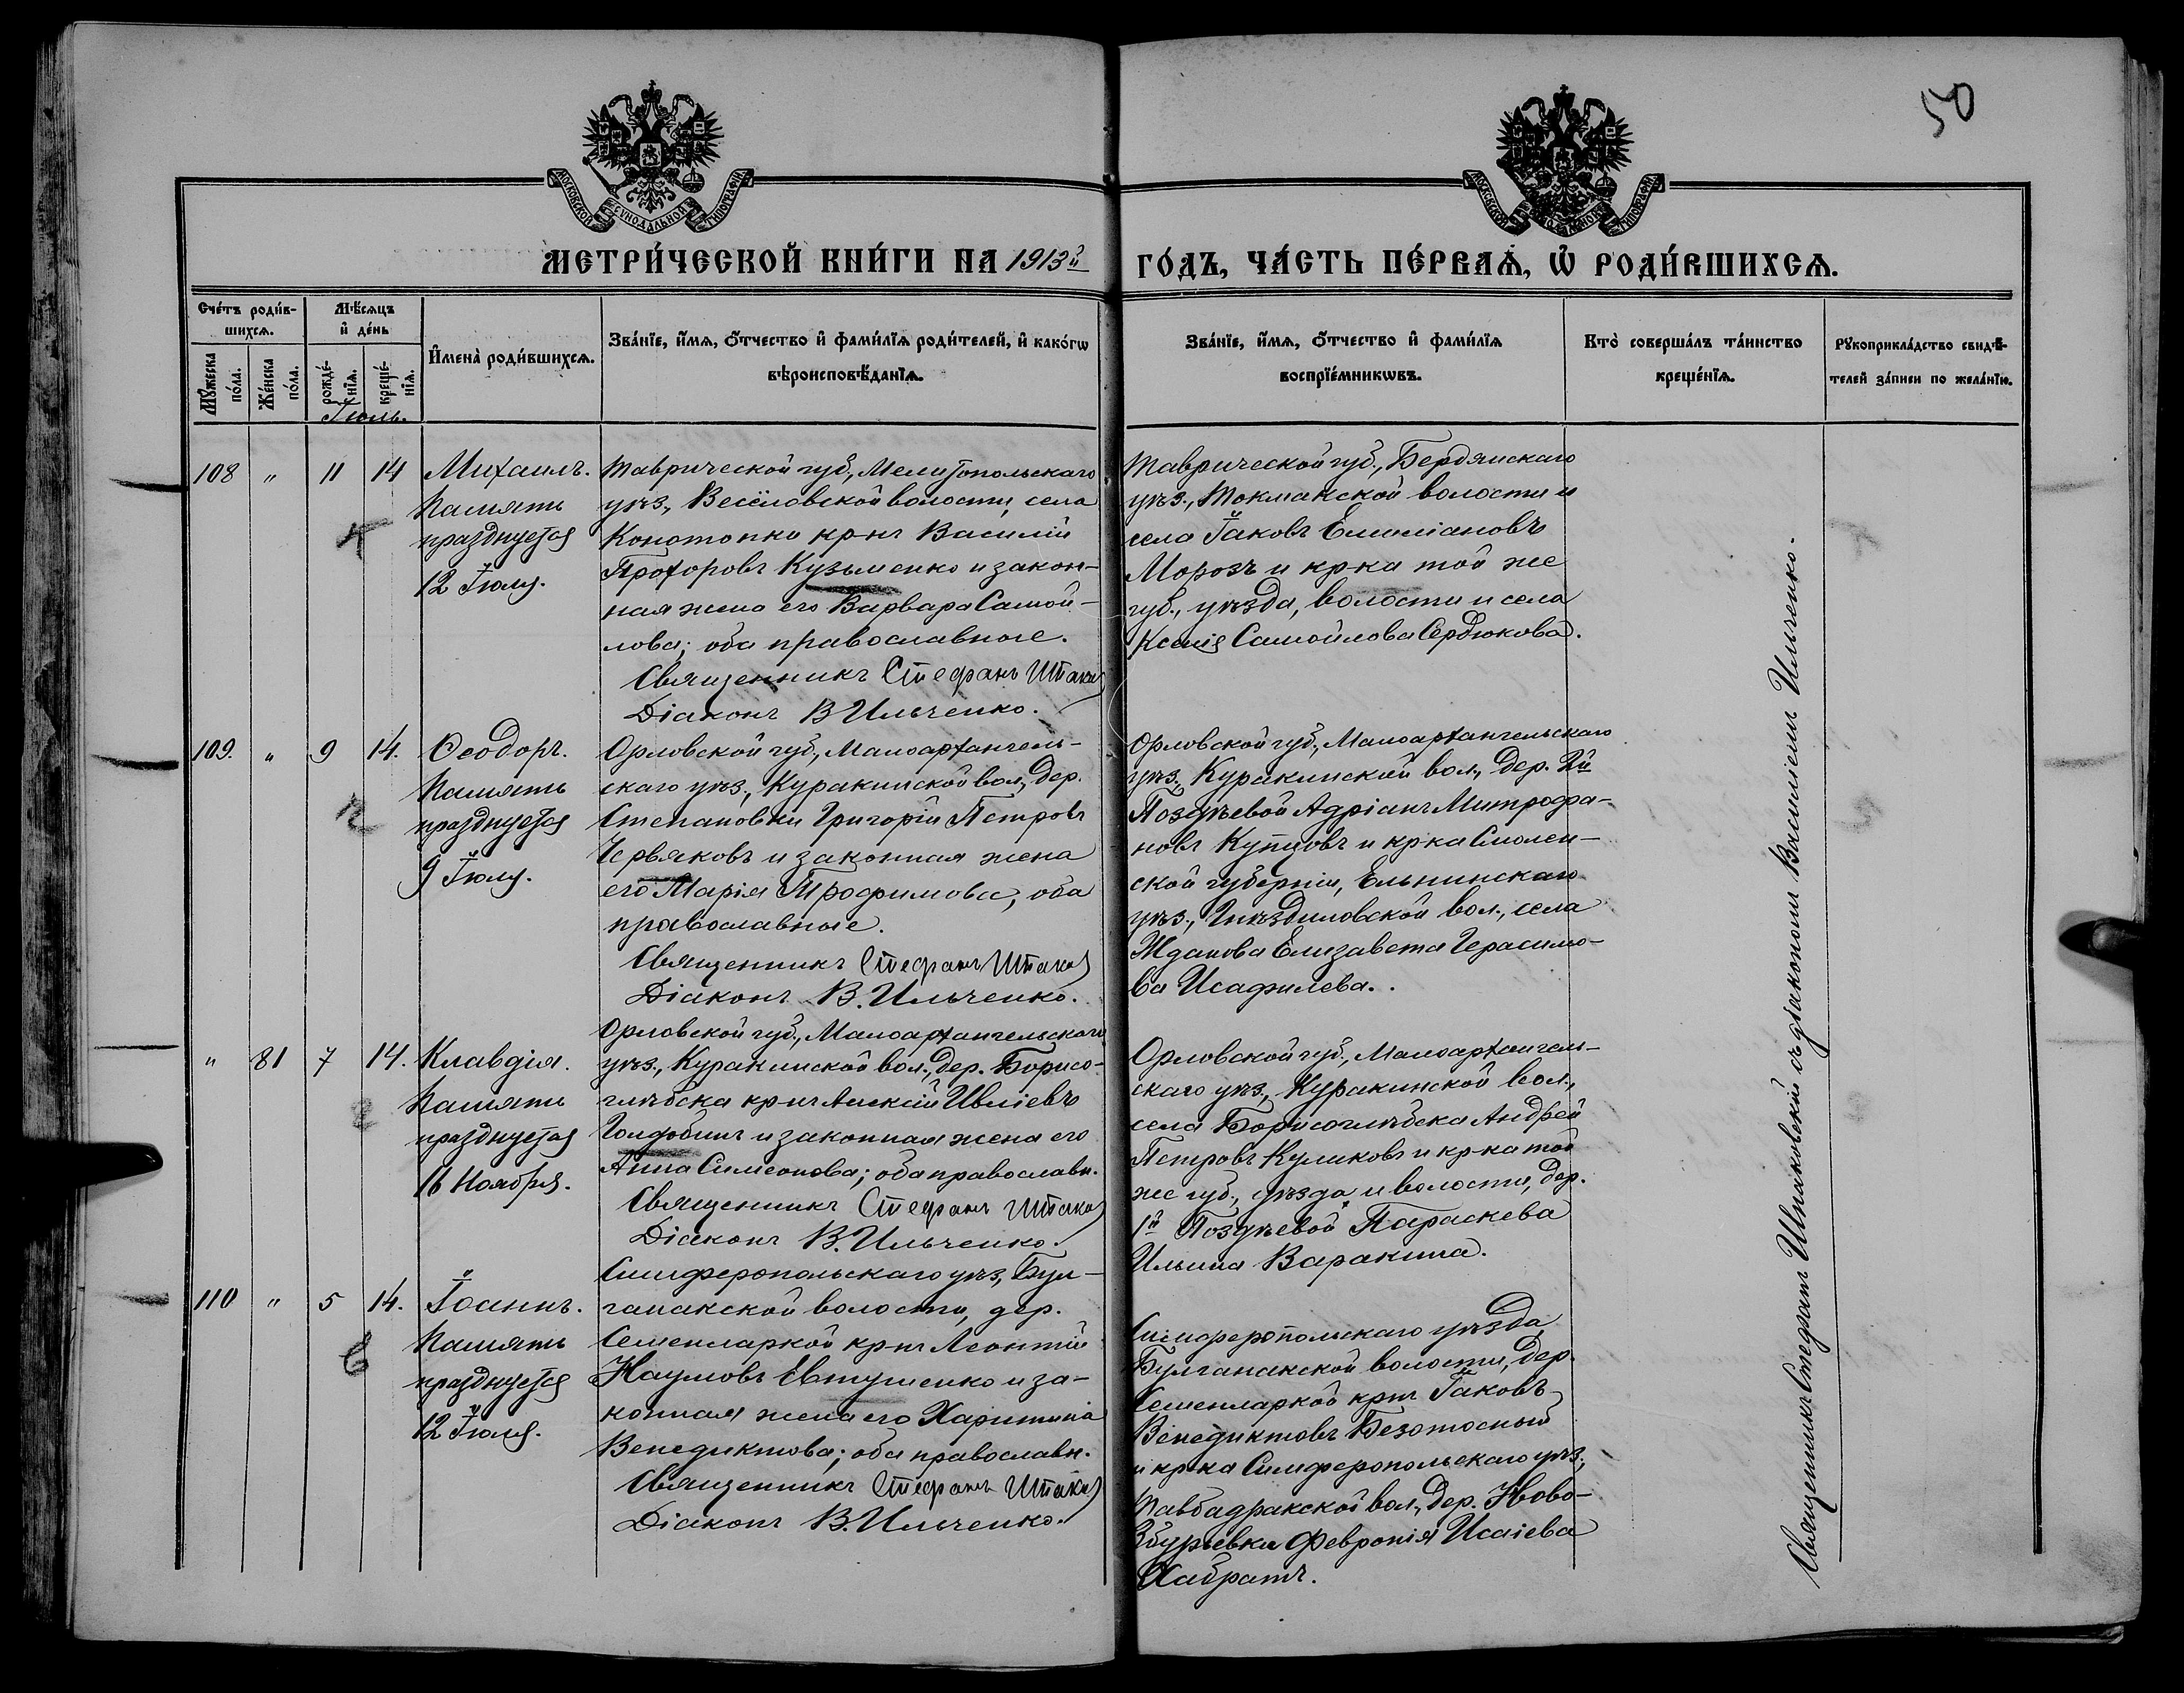 50
МОСКОВСКОЙ СУНОДАЛЬНОЙ ТИПОГРАФІИ
МОСКОВСКОЙ ТИПОГРАФІИ
МЕТРИ́ЧЕСКОЙ КНИ́ГИ НА 1913й
ГО́ДЪ, ЧА́СТЬ ПЕ́РВАѦ, Ѡ РОДИ́ВШИХСѦ.
Сче́тъ роди́в-
шихсѧ.
Мѣ́сѧцъ
и҆ де́нь
Мꙋ́жеска
по́ла.
Же́нска
по́ла.
рожде́-
нїѧ.
креще́-
нїѧ.
И҆мена̀ роди́вшихсѧ.
Зва́нїе, и҆́мѧ, ѻ҆́тчество и҆ фами́лїѧ роди́телей, и҆ како́гѡ
вѣроисповѣ́данїѧ.
Зва́нїе, и҆́мѧ, ѻ҆́тчество и҆ фами́лїѧ
воспрїе́мникѡвъ.
Кто̀ соверша́лъ та́инство
креще́нїѧ.
Рꙋкоприкла́дство свидѣ́-
телей за́писи по жела́нїю.
Іюль.
108 " 11 14 Михаилъ.
Память
празднуется
12 Іюля.
Таврической губ., Мелитопольскаго
уѣз., Весёловской волости, села
Конотопки кр-нъ Василій
Прохоровъ Кузьменко и закон-
ная жена его Варвара Самой-
лова; оба православные.
Священникъ Стефанъ Шпак
Діаконъ В Ильченко.
Таврической губ., Бердянскаго
уѣз., Токмакской волости и
села Іаковъ Емиліановъ
Морозъ и кр-ка той же
губ., уѣзда, волости и села
Ксенія Самойлова Сердюкова.
109. " 9 14. Ѳеодоръ.
Память
празднуется
9 Іюля.
Орловской губ., Малоархангель-
скаго уѣз., Куракинской вол., дер.
Степановки Григорій Петровъ
Червяковъ и законная жена
его Марія Трофимова, оба
православные.
Священникъ Стефанъ Шпак
Діаконъ В. Ильченко.
Орловской губ., Малоархангельскаго
уѣз., Куракинской вол., дер. 2й
Поздѣевой Адріанъ Митрофа-
новъ Купцовъ и кр-ка Смолен-
ской губерніи, Ельнинскаго
уѣз., Гнѣздиловской вол., села
Жданова Елизавета Герасимо-
ва Исафилева.
" 81 7 14. Клавдія.
Память
празднуется
16 Ноября.
Орловской губ., Малоархангельскаго
уѣз., Куракинской вол., дер. Борисо-
глѣбска кр-нъ Алексій Ивліевъ
Голдобинъ и законная жена его
Анна Симеонова; оба православн.
Священникъ Стефанъ Шпак
Діаконъ В. Ильченко.
Орловской губ., Малоархангель-
скаго уѣз., Куракинской вол.,
села Борисоглѣбска Андрей
Петровъ Куликовъ и кр-ка той
же губ., уѣзда и волости, дер.
1й Поздѣевой Параскева
Ильина Варакина.
110 " 5 14. Іоаннъ.
Память
празднуется
12 Іюля.
Симферопольскаго уѣз., Бул-
ганакской волости, дер.
Семенларкой кр-нъ Леонтій
Наумовъ Евтушенко и за-
конная жена его Харитинія
Венедиктова; оба православн.
Священникъ Стефанъ Шпак
Діаконъ В. Ильченко.
Симферопольскаго уѣзда
Булганакской волости, дер.
Семенларкой крнъ Іаковъ
Венедиктовъ Безотосный
и кр-ка Симферопольскаго уѣз.,
Тавбадракской вол., дер. Ново-
Збурьевки Февронія Исаіева
Хабратъ.
Священникъ Стефанъ Шпаковскій съ діакономъ Василіемъ Ильченко.